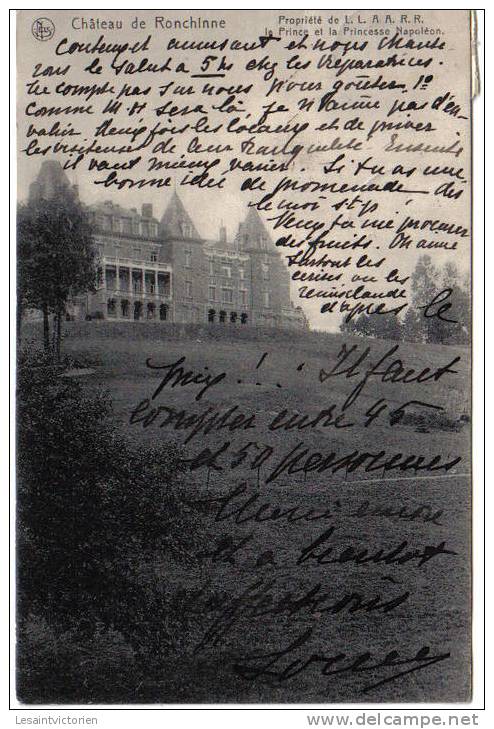 Château de Ronchinne
Propriété de L. L. A A. R R.
le Prince et la Princesse Napoléon.
amusant et nous chante
rons le salut à 5 hs chez les Réparatrices.
Ne compte pas sur nous pour goûter. 1º
Comme M. H sera là, je n'aime pas d'en-
vahir deux fois les et de priver
les visiteuses de leur tranquilité. Ensuite
il vaut mieux varier. Si tu as une
bonne idée de promenade dis
le moi st. pl.
Veux tu me procurer
des fruits. On aime
surtout les
cerises ou les
d'après le
prix!!! Il faut
compter entre 45
et 50 personnes
Merci encore
et à bientôt
affections
Lesaintvictorien
http://www.delcampe.net